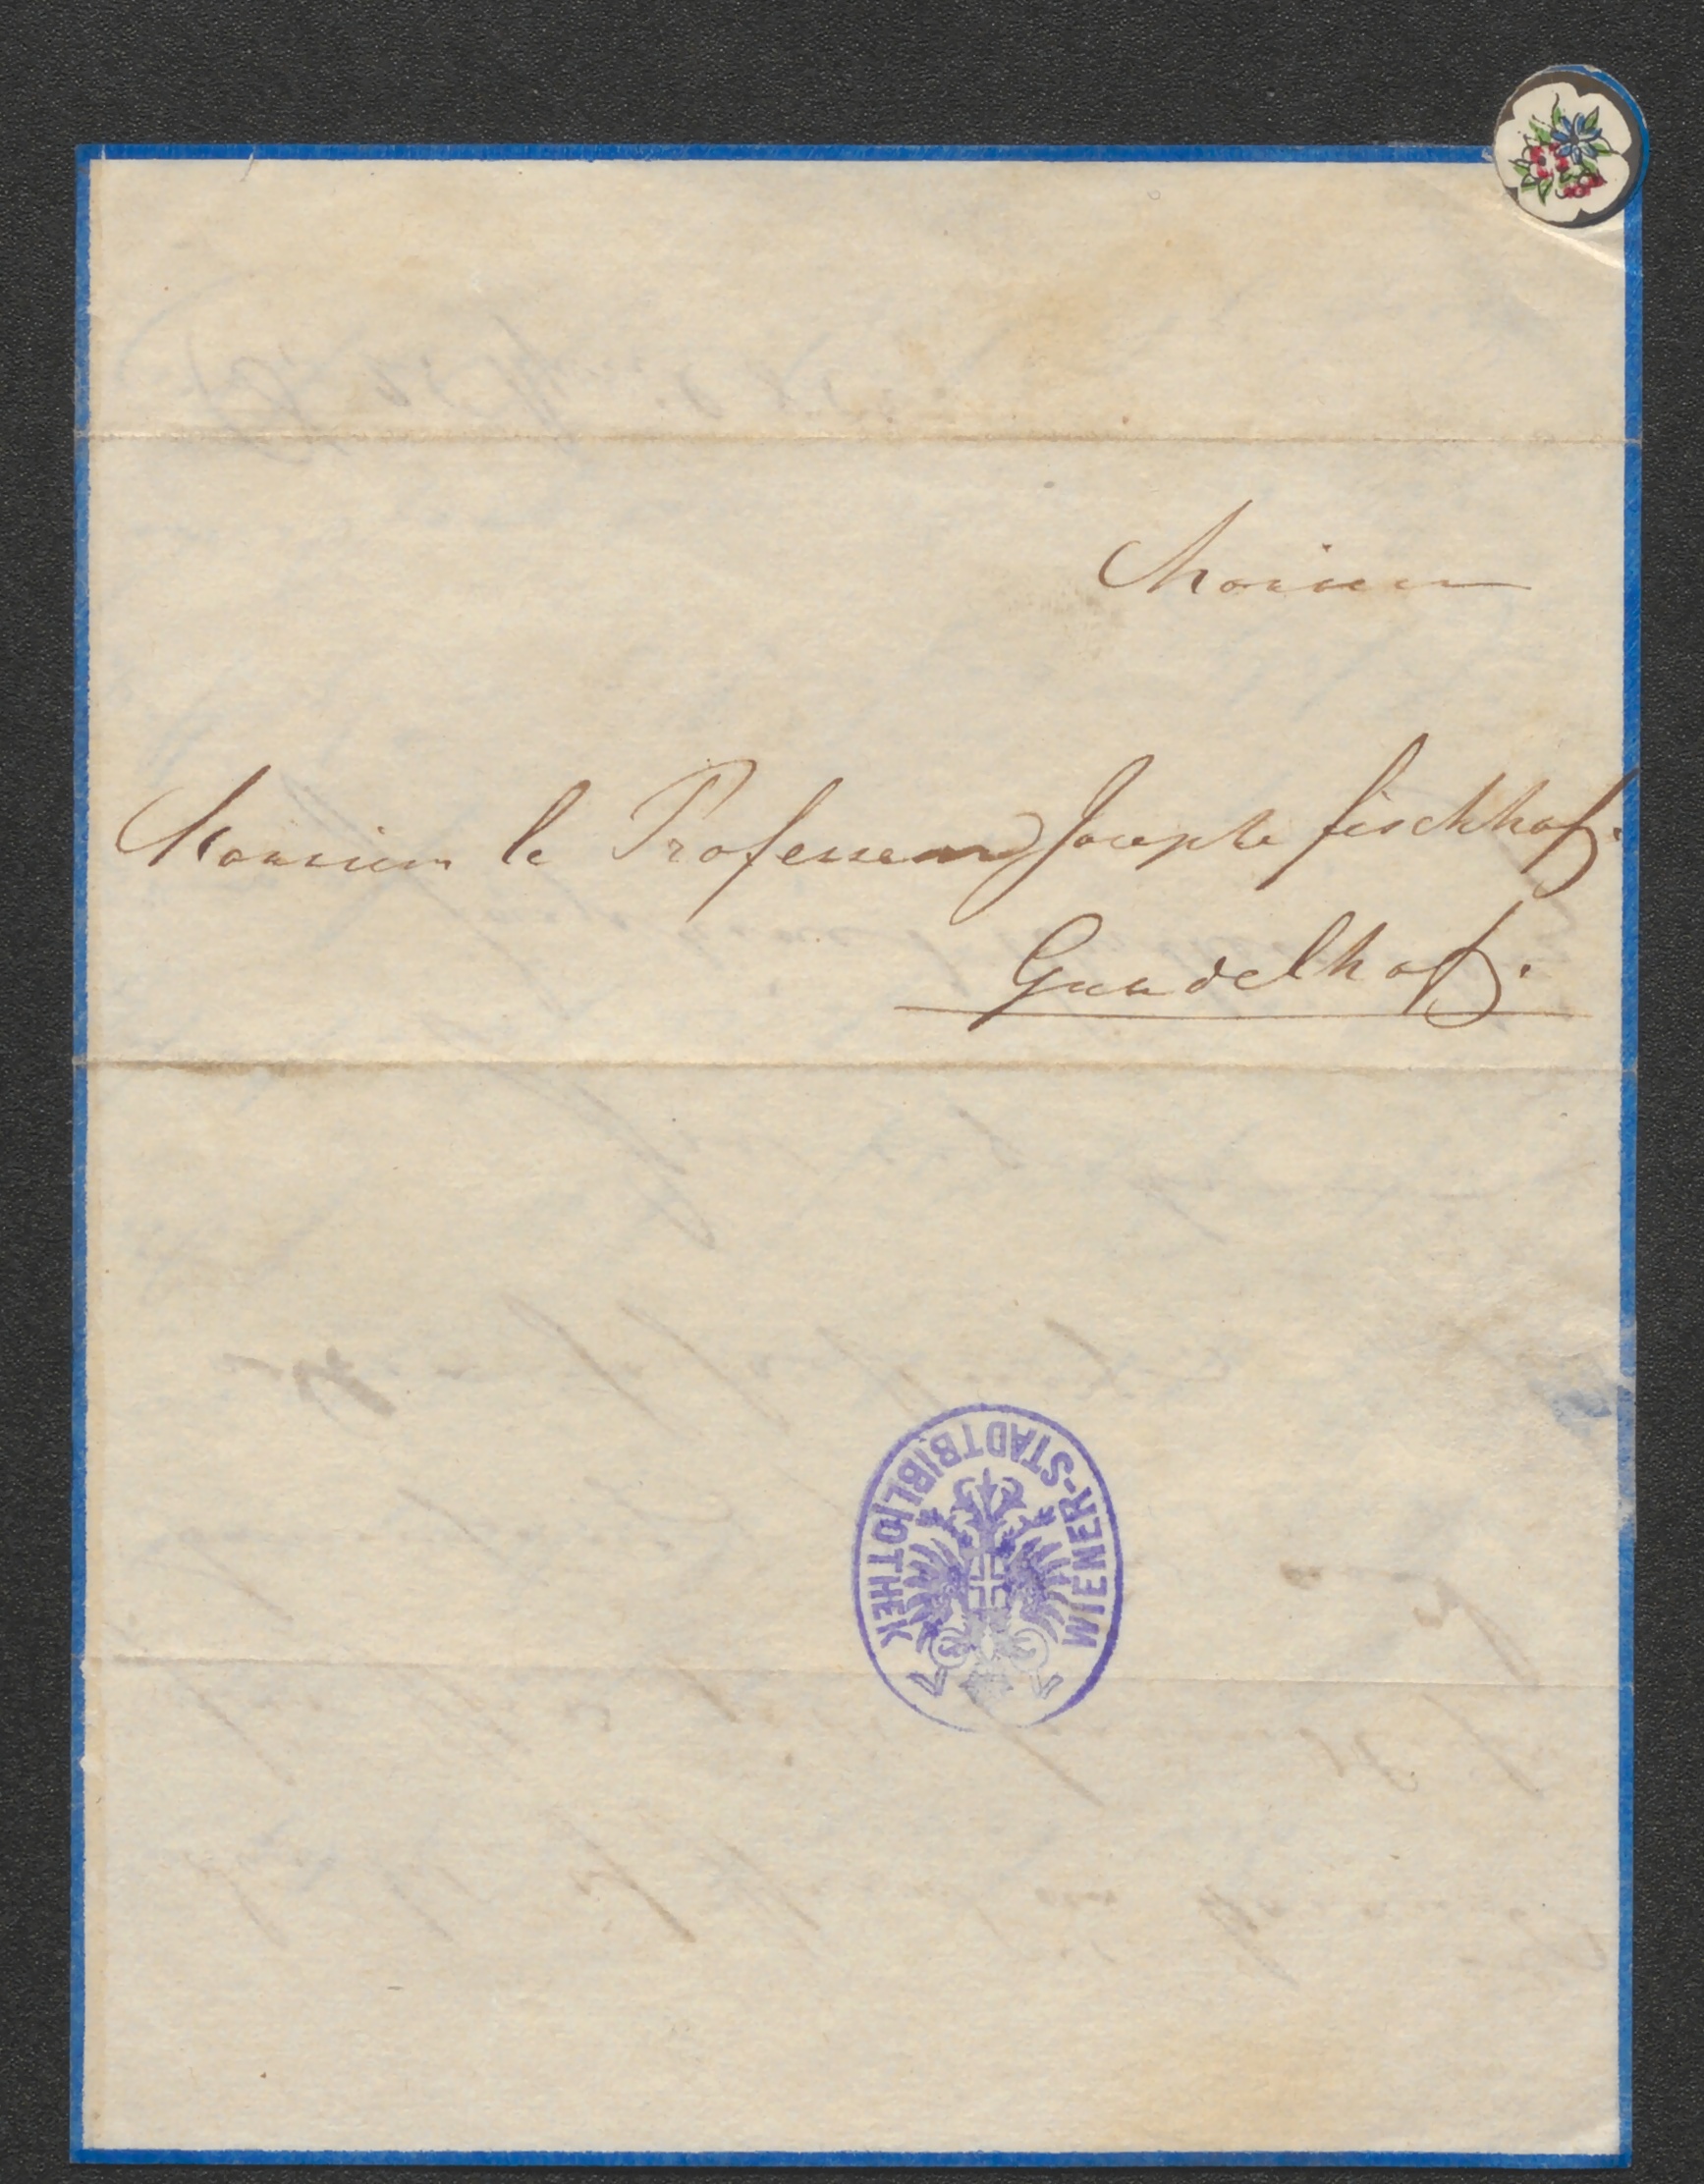 Monsieur
Monsieur le Professeur Joseph fischhof.
Gundelhof.
WIENER-STADTBIBLIOTHEK